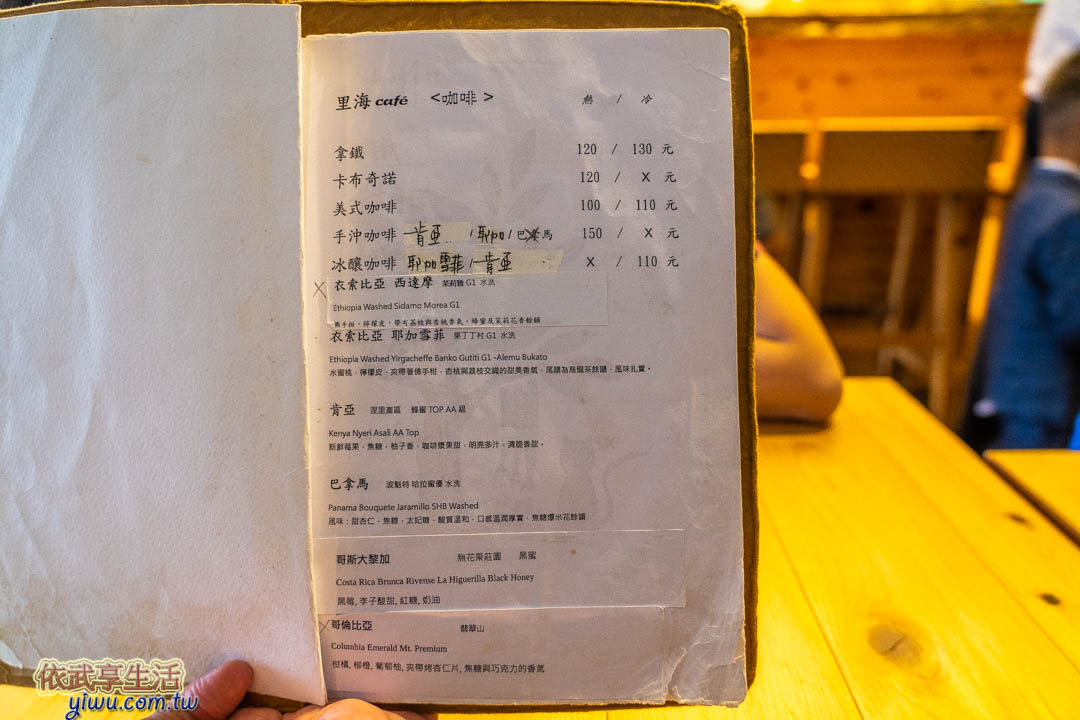 里海 café <咖啡 > 熱 / 冷
拿鐵 120 / 130 元
卡布奇諾 120 / X 元
美式咖啡 100 / 110 元
手沖咖啡 肯亞 / 耶加 / 巴拿馬 150 / X 元
冰釀咖啡 耶加雪菲 / 肯亞 X / 110 元
X 衣索比亞 西達摩 茉莉雅 G1 水洗
Ethiopia Washed Sidamo Morea G1
佛手柑、檸檬皮，帶有荔枝與杏桃香氣，蜂蜜及茉莉花香餘韻
衣索比亞 耶加雪菲 果丁丁村 G1 水洗
Ethiopia Washed Yirgacheffe Banko Gutiti G1 -Alemu Bukato
水蜜桃、檸檬皮，夾帶著佛手柑，杏桃與荔枝交織的甜美香氣，尾韻為烏龍茶餘韻，風味扎實。
肯亞 涅里產區 蜂蜜 TOP AA 級
Kenya Nyeri Asali AA Top
新鮮莓果、焦糖，柚子香、咖啡漿果甜，明亮多汁，清脆香甜。
巴拿馬 波魁特 哈拉蜜優 水洗
Panama Bouquete Jaramillo SHB Washed
風味：甜杏仁、焦糖，太妃糖，酸質溫和，口感溫潤厚實，焦糖爆米花餘韻
哥斯大黎加 無花果莊園 黑蜜
Costa Rica Brunca Rivense La Higuerilla Black Honey
黑莓, 李子酸甜, 紅糖, 奶油
X 哥倫比亞 翡翠山
Columbia Emerald Mt. Premium
柑橘, 柳橙, 葡萄柚, 夾帶烤杏仁片, 焦糖與巧克力的香氣
依武享生活
yiwu.com.tw